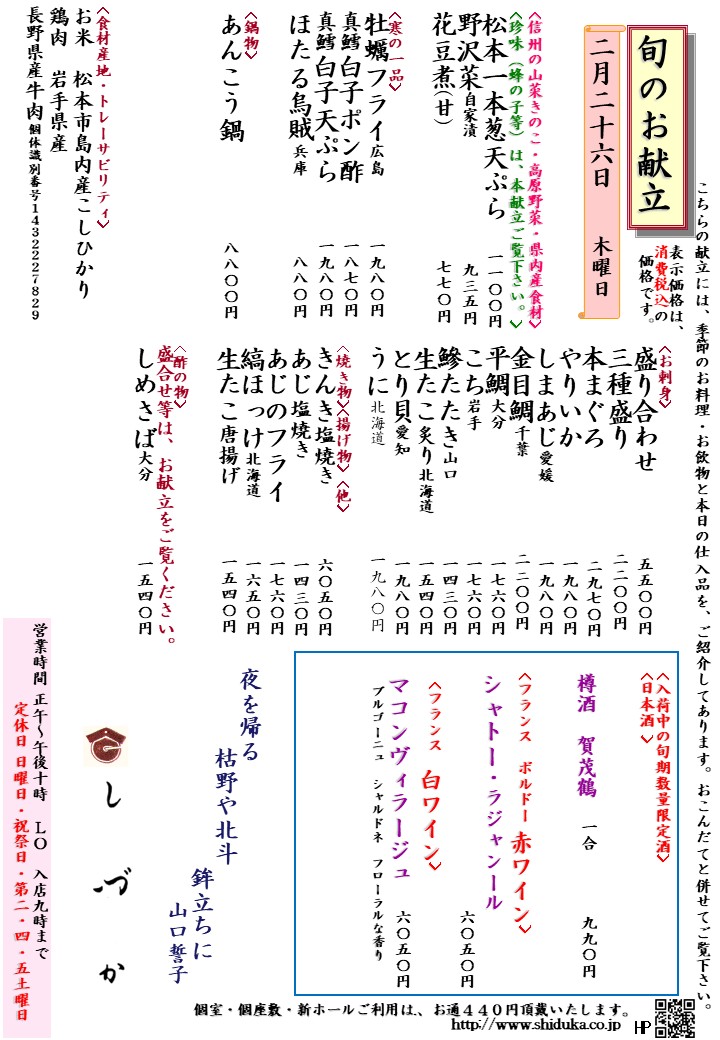 こちらの献立には、季節のお料理・お飲物と本日の仕入品を、ご紹介してあります。おこんだてと併せてご覧下さい。
表示価格は、
消費税込の
価格です。
旬のお献立
二月二十六日　木曜日
〈信州の山菜きのこ・高原野菜・県内産食材〉
〈珍味（蜂の子等）は、本献立ご覧下さい。〉
松本一本葱天ぷら　一一〇〇円
野沢菜自家漬　九三五円
花豆煮(甘)　七七〇円
〈寒の一品〉
牡蠣フライ広島　一九八〇円
真鱈白子ポン酢　一八七〇円
真鱈白子天ぷら　一九八〇円
ほたる烏賊兵庫　八八〇円
〈鍋物〉
あんこう鍋　八八〇〇円
〈食材産地・トレーサビリティ〉
お米　松本市島内産こしひかり
鶏肉　岩手県産
長野県産牛肉個体識別番号1432227829
〈お刺身〉
盛り合わせ　五五〇〇円
三種盛り　二二〇〇円
本まぐろ　二九七〇円
やりいか　一九八〇円
しまあじ愛媛　一九八〇円
金目鯛千葉　二二〇〇円
平鯛大分　一七六〇円
こち岩手　一七六〇円
鯵たたき山口　一四三〇円
生たこ炙り北海道　一五四〇円
とり貝愛知　一九八〇円
うに北海道　一九八〇円
〈焼き物〉〈揚げ物〉〈他〉
きんき塩焼き　六〇五〇円
あじ塩焼き　一四三〇円
あじのフライ　一七六〇円
縞ほっけ北海道　一六五〇円
生たこ唐揚げ　一五四〇円
盛合せ等は、お献立をご覧ください。
〈酢の物〉
しめさば大分　一五四〇円
〈入荷中の旬期数量限定酒〉
〈日本酒〉
樽酒　賀茂鶴　一合　九九〇円
〈フランス　ボルドー　赤ワイン〉
シャトー・ラジャンール　六〇五〇円
〈フランス　白ワイン〉
マコンヴィラージュ　六〇五〇円
ブルゴーニュ　シャルドネ　フローラルな香り
夜を帰る
枯野や北斗
鉾立ちに
山口誓子
しづか
営業時間　正午〜午後十時　ＬＯ　入店九時まで
定休日　日曜日・祝祭日・第二・四・五土曜日
個室・個座敷・新ホールご利用は、お通４４０円頂戴いたします。
http://www.shiduka.co.jp　HP